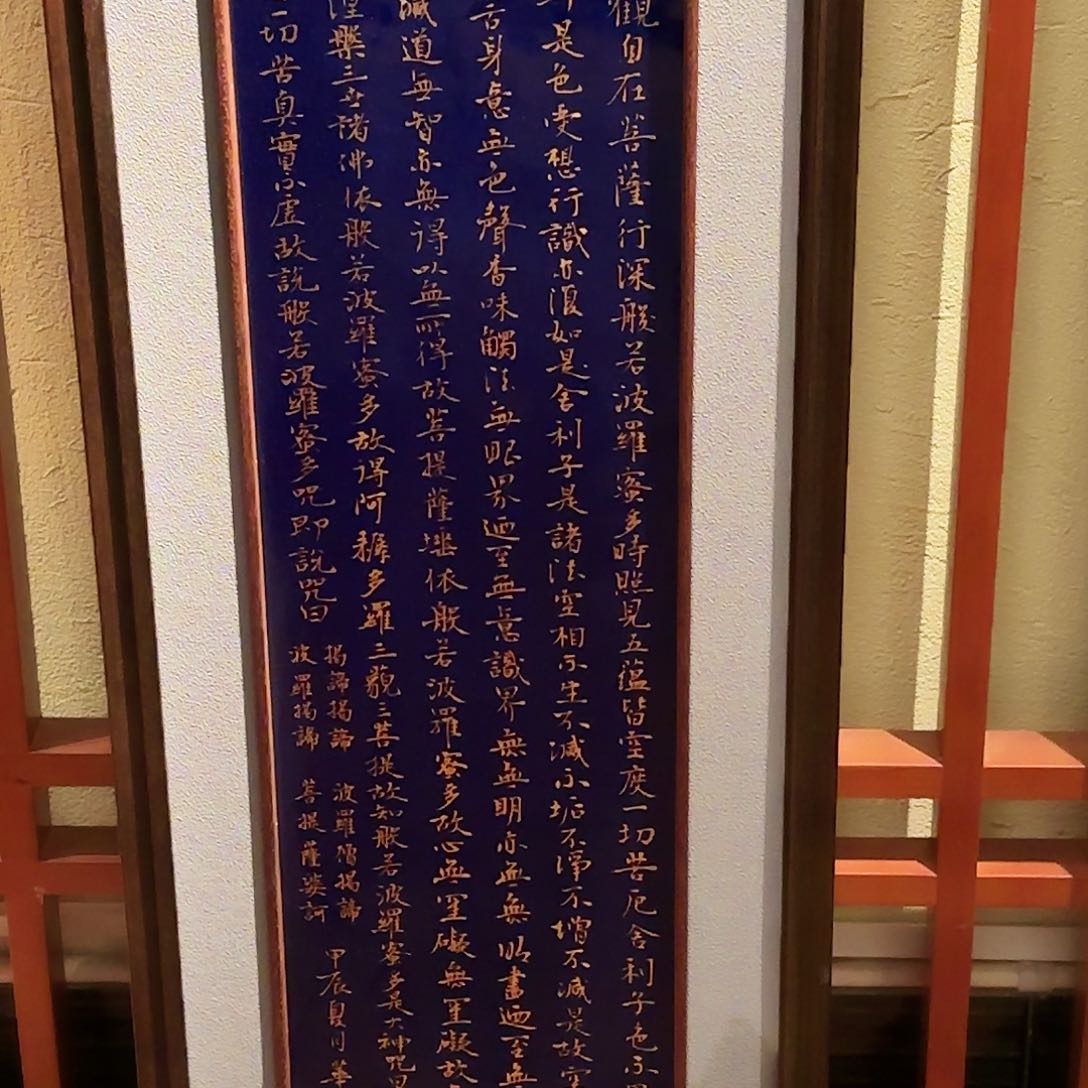 觀自在菩薩行深般若波羅蜜多時照見五蘊皆空度一切苦厄舍利子色不
是色受想行識亦復如是舍利子是諸法空相不生不滅不垢不淨不增不減是故空
舌身意無色聲香味觸法無眼界迺至無意識界無無明亦無無明盡迺至無
滅道無智亦無得以無所得故菩提薩埵依般若波羅蜜多故心無罣礙無罣礙故
涅槃三世諸佛依般若波羅蜜多故得阿耨多羅三藐三菩提故知般若波羅蜜多是大神咒
一切苦真實不虛故說般若波羅蜜多咒即說咒曰
揭諦揭諦 波羅僧揭諦
波羅揭諦 菩提薩婆訶
甲辰夏月